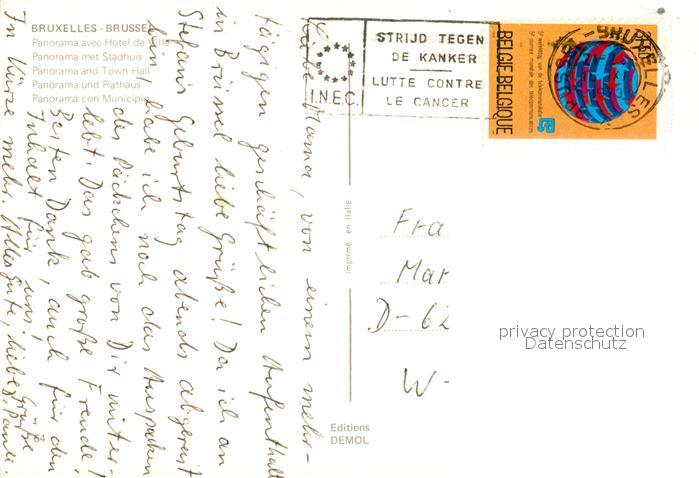 BRUXELLES - BRUSSEL
Panorama avec Hotel de Ville
Panorama met Stadhuis
Panorama and Town Hall
Panorama und Rathaus
Panorama con Municipio
64
Liebe Mama, von einem mehr-
tägigen geschäftlichen Aufenthalt
in Brüssel liebe Grüße! Da ich an
Stefanis Geburtstag abends abgereist
bin, habe ich noch das Auspacken
des Päckchens von Dir miter-
lebt. Das gab große Freude!
Besten Dank, auch für den
Inhalt für uns!
In Kürze mehr. Alles Gute, liebe Grüße
imprimé en Italie
Editions
DEMOL
I.N.E.C.
STRIJD TEGEN
DE KANKER
LUTTE CONTRE
LE CANCER
BELGIE-BELGIQUE
5e werelddag van de telekommunikatie
5e journée mondiale des télécommunications
Fra
Mar
D-62
W-
privacy protection
Datenschutz